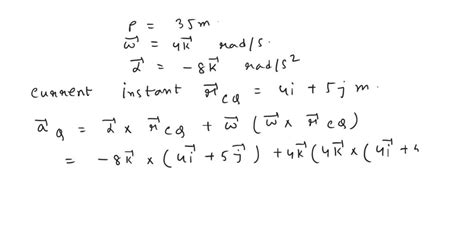 P = 35m.
ω⃗ = 4k⃗ rad/s.
α⃗ = -8k⃗ rad/s²
current instant r⃗_CQ = 4i + 5j m.
a⃗_Q = α⃗ × r⃗_CQ + ω⃗ (ω⃗ × r⃗_CQ)
= -8k⃗ × (4i⃗ + 5j⃗) + 4k⃗ (4k⃗ × (4i⃗ +